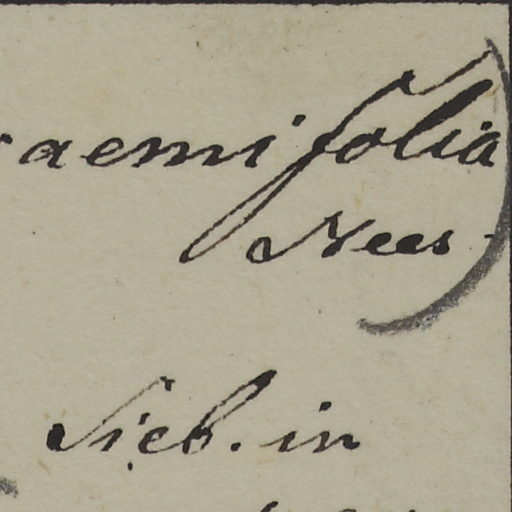 aemifolia
Nees
Sieb. in